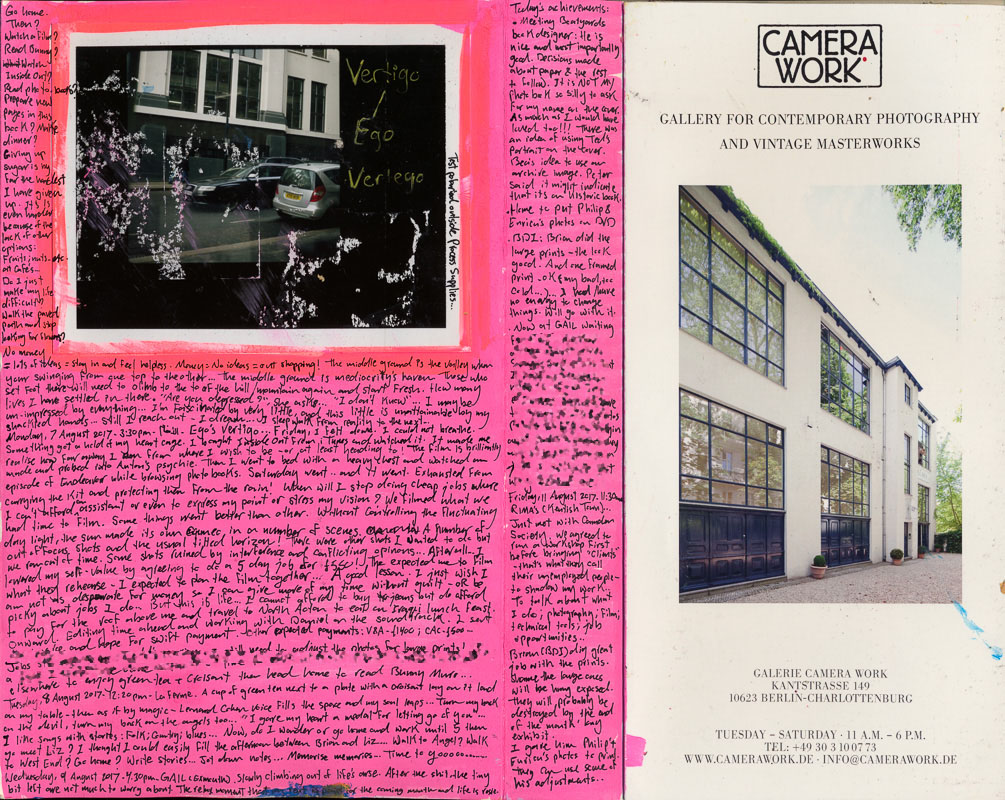 Go home.
Then?
Watch a film?
Read Bunny?
Watch
Inside Out?
Read photo books?
Prepare new
pages in this
book? Make
dinner?
Giving up
sugar is by
far the hardest
I have given
up. It is
even harder
because of the
lack of other
options:
Fruits, nuts.. etc
at Cafés...
Do I just
make my life
difficult?
Walk the paved
path and stop
looking for
No money
= lots of ideas = stay in and feel helpless. Money = No ideas = out shopping! The middle ground is the valley when
your swinging from one top to the other... the middle ground is mediocrity's haven. Those who
set foot there will need to climb to the top of the hill/mountain again and start Fresh. How many
lives I have settled in there. "Are you depressed?" She asks.. "I don't know"... I may be
un-impressed by everything.. I'm fascinated by very little, and this little is unattainable by my
shackled hands... Still I reach out - I dream.. I sleepwalk from reality to the next..
Monday, 7 August 2017 - 3:30pm. Ego's Vertigo.. Friday, I felt alone. I could not breathe.
Something got a hold of my heart cage. I bought Inside Out from iTunes and watched it. It made me
realise how far away I am from where I wish to be - or at least heading to! The film is brilliantly
made and probed into Anton's psychic. Then I went to bed with a heavy chest and watched an
episode of Endeavor while browsing photobooks. Saturday went.. and it went. Exhausted from
carrying the kit and protecting them from the rain! When will I stop doing cheap jobs where
I can't afford assistant or even to express my point or stress my vision? We filmed what we
had time to film. Some things went better than other. Without controlling the fluctuating
day light, the sun made its own in a number of scenes. A number of
out of focus shots and the usual tilted horizon! There were other shots I wanted to do but
we ran out of time. Some shots ruined by interference and conflicting opinions... After all.. I
lowered my self-value by agreeing to do a 5 day job for £550! The expected me to film
what they rehearse - I expected to plan the film together... A good lesson. I just wish I
am not as desperate for money so I can give more of my time without guilt - or be
picky about jobs I do.. But this is life.. I cannot afford to buy but do afford
to pay for the roof above me and travel to North Acton to eat an Iraqi lunch feast.
Onward. Editing time ahead and working with Daniel on the soundtrack. I sent
invoice and hope for swift payment. Other expected payments: VBA - £1400; CAC - £500...
Jobs will need to adjust the photos for large prints!
elsewhere to enjoy green tea & croissant then head home to read Bunny Muro...
Tuesday, 8 August 2017 - 12:20pm - La Ferme. A cup of green tea next to a plate with a croissant lay on it land
on my table - then as if by magic - Leonard Cohen voice fills the space and my soul jumps... Turn my back
on the devil, turn my back on the angels too... "I gave my heart a medal for letting go of you"..
I like songs with stories: Folk; Country; blues... Now, do I wander or go home and work until 5 then
go meet Liz? I thought I could easily fill the afternoon between Brian and Liz... Walk to Angel? Walk
to West End? Go home? Write stories... Jot down notes... Memorise memories... Time to goooooo......
Wednesday, 9 August 2017 - 4:30pm. GAIL (Exmouth). Slowly climbing out of life's arse. After the shit the tiny
bit left are not much to worry about. The rebus moment that for the coming month and life is rosie.
Vertigo
/
Ego
Vertego
Test polaroid outside Process Supplies...
Today's achievements:
• Meeting Boatyards
book designer: He is
nice and most importantly
good. Decisions made
about paper & the rest
to follow. It is NOT MY
Photobook so silly to ask
for my name on the cover.
As much as I would have
loved too!!! There was
an idea of using Ted's
portrait on the cover.
Beci's idea to use an
archive image. Peter
said it might indicate
that its an historic book.
Home to put Philip &
Enrico's photos on DVD
. BDI: Brian did the
large prints - the look
good. And one framed
print - ok (my bad, too
Cold...)... I had/have
no energy to change
things. Will go with it.
. Now at GAIL waiting
Friday 11 August 2017. 11:30am
RIMA's (Kentish Town)..
Just met with Camden
Society, we agreed to
run a workshop first
before bringing "Clients"
- that's what they call
their unemployed people -
to shadow my work.
To talk about what
I do; photography; film;
technical tools; job
opportunities...
Brian (BDI) doing great
job with the prints.
Shame the large ones
will be long exposed.
they will probably be
destroyed by the end
of the month long
exhibit.
I gave him Philip &
Enrico's photos to print.
they can use some of
his adjustments..
CAMERA
WORK
GALLERY FOR CONTEMPORARY PHOTOGRAPHY
AND VINTAGE MASTERWORKS
GALERIE CAMERA WORK
KANTSTRASSE 149
10623 BERLIN-CHARLOTTENBURG
TUESDAY – SATURDAY · 11 A.M. – 6 P.M.
TEL: +49 30 3 10 07 73
WWW.CAMERAWORK.DE · INFO@CAMERAWORK.DE